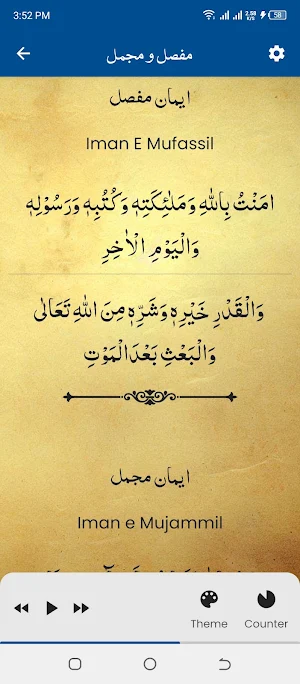 3:52 PM
2.58 K/s
58
مفصل و مجمل
ایمان مفصل
Iman E Mufassil
اٰمَنْتُ بِاللهِ وَمَلٰئِكَتِهٖ وَكُتُبِهٖ وَرَسُوْلِهٖ
وَالْيَوْمِ الْاٰخِرِ
وَالْقَدْرِ خَيْرِهٖ وَشَرِّهٖ مِنَ اللهِ تَعَالٰى
وَالْبَعْثِ بَعْدَالْمَوْتِ
ایمان مجمل
Iman e Mujammil
Theme
Counter